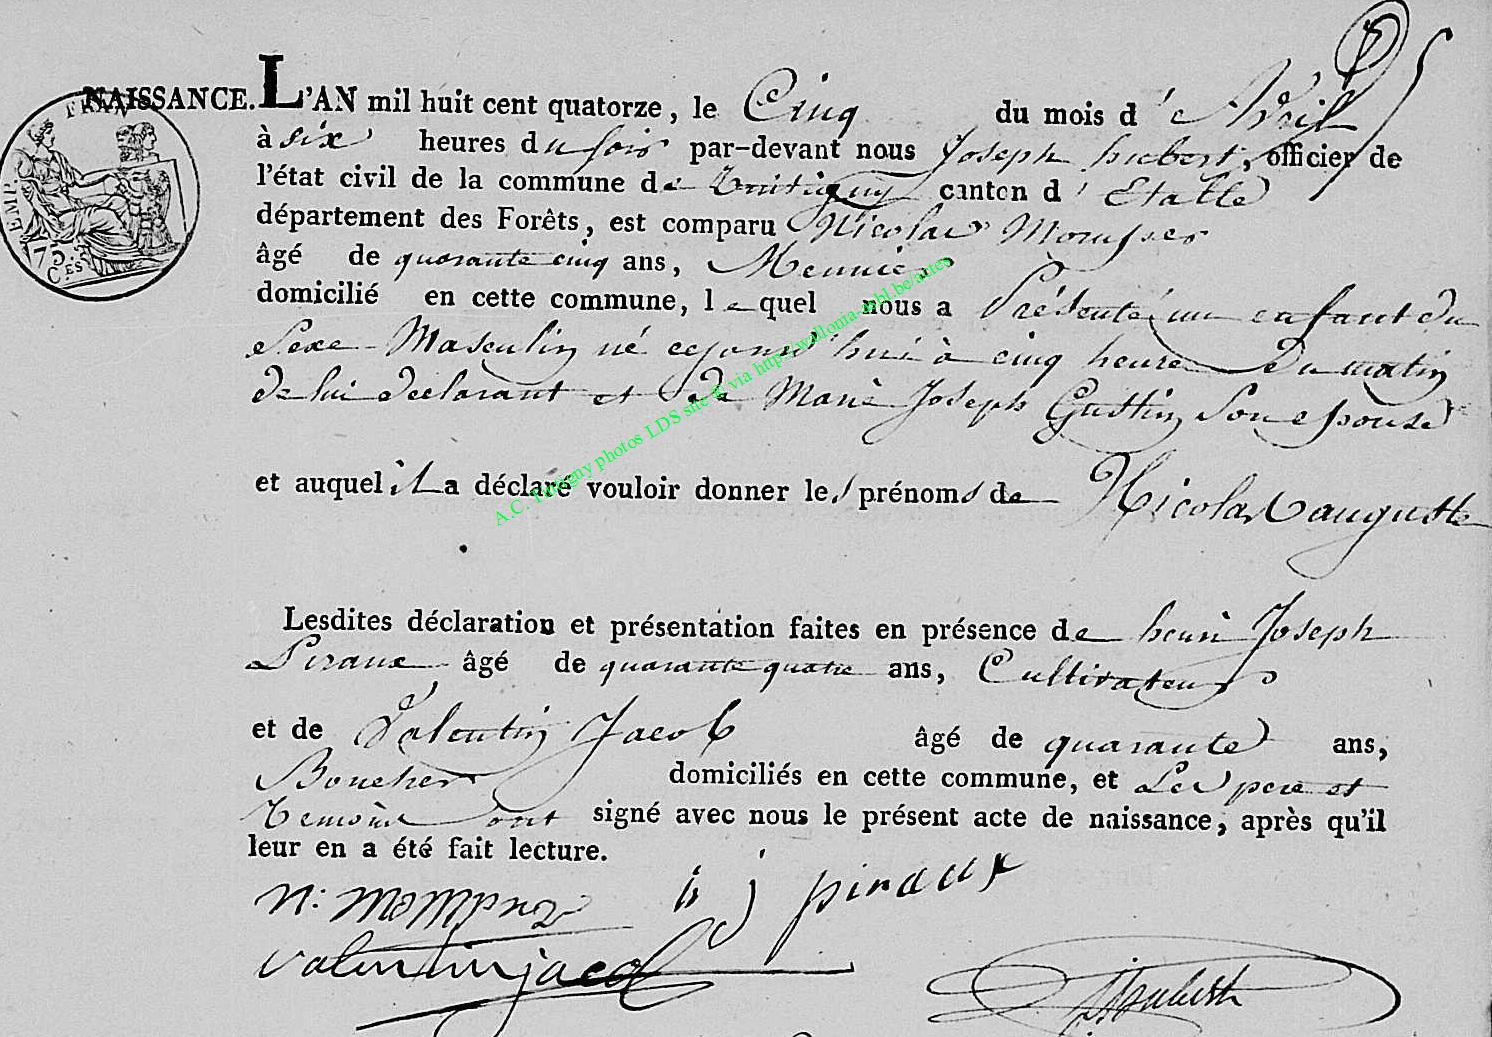 NAISSANCE. L'AN mil huit cent quatorze, le Cinq du mois d'Avril
à six heures du soir par-devant nous Joseph hubert, officier de
l'état civil de la commune de tintigny canton d'Etalle
département des Forêts, est comparu Nicolas
âgé de quarante cinq ans, Meunier
domicilié en cette commune, lequel nous a Présenté un enfant du
Sexe Masculin né cejourd'hui à cinq heure du matin
de lui déclarant et de Marie Joseph Gustin Son epouse
et auquel il a déclaré vouloir donner les prénoms de Nicolas auguste
Lesdites déclaration et présentation faites en présence de henri Joseph
Piraux âgé de quarante quatre ans, Cultivateur
et de Valentin Jacob âgé de quarante ans,
Boucher domiciliés en cette commune, et Les pere et
temoins ont signé avec nous le présent acte de naissance, après qu'il
leur en a été fait lecture.
n:
h j piraux
valentin jacob
J hubert
EMP. FRAN
75.
C.ES
A.C. Tintigny photos LDS site @ via http://wallonia-mbl.be/actes